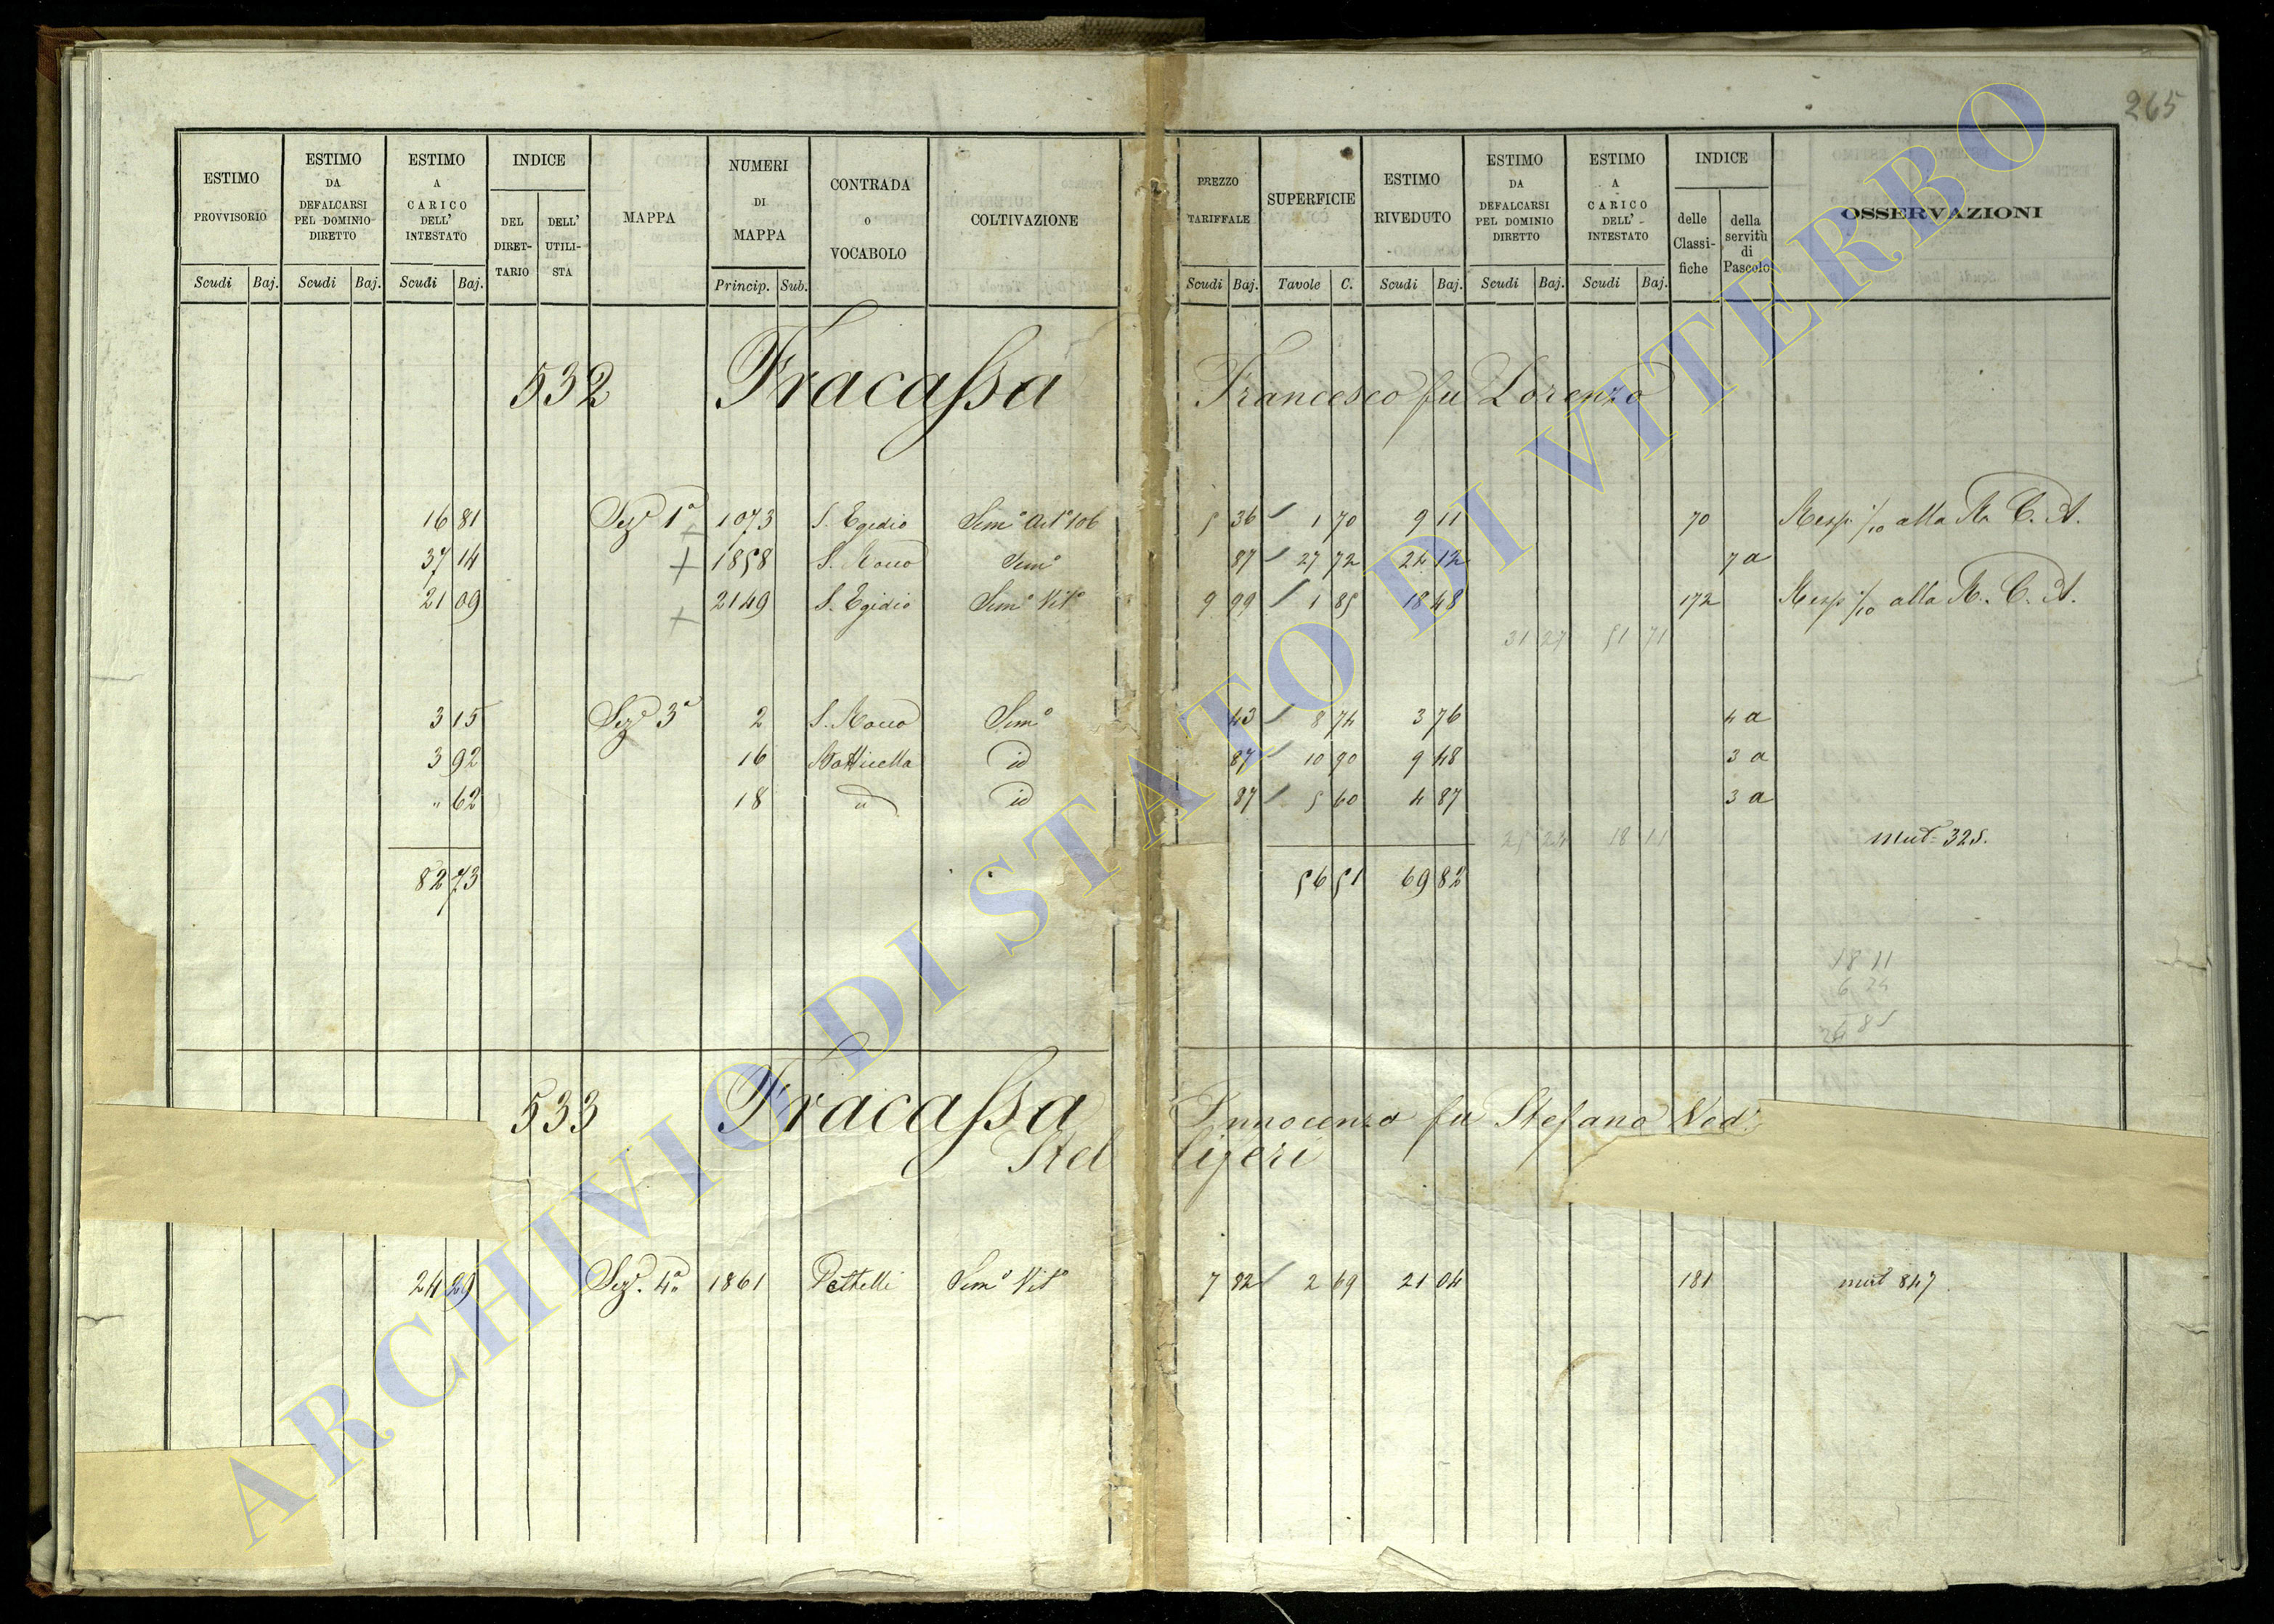 265
ESTIMO PROVVISORIO Scudi Baj.
ESTIMO DA DEFALCARSI PEL DOMINIO DIRETTO Scudi Baj.
ESTIMO A CARICO DELL' INTESTATO Scudi Baj.
INDICE DEL DIRET- TARIO DELL' UTILI- STA
MAPPA
NUMERI DI MAPPA Princip. Sub.
CONTRADA o VOCABOLO
COLTIVAZIONE
PREZZO TARIFFALE Scudi Baj.
SUPERFICIE Tavole C.
ESTIMO RIVEDUTO Scudi Baj.
ESTIMO DA DEFALCARSI PEL DOMINIO DIRETTO Scudi Baj.
ESTIMO A CARICO DELL' INTESTATO Scudi Baj.
INDICE delle Classi- fiche della servitù di Pascolo
OSSERVAZIONI
532 Fracassa Francesco fu Lorenzo
16 81 Sez.e 1a 1073 S. Egidio Sem.o Art.o 106 5 36 1 70 9 11 70 Resp. 1/10 alla R. C. A.
37 14 + 1858 S. Rocco Sem.o 87 27 72 24 12 7 a
21 09 + 2149 S. Egidio Sem.o Vit.o 9 99 1 85 18 48 172 Resp. 1/10 alla R. C. A.
31 27 51 71
3 15 Sez.e 3a 2 S. Rocco Sem.o 43 8 74 3 76 4 a
3 92 16 id 87 10 90 9 48 3 a
" 62 18 id 87 5 60 4 87 3 a
18 11 mut. 325.
82 73 56 51 69 82
18 11
6 24
533 Fracassa Innocenzo fu Stefano Ved.
Stel ligeri
24 29 Sez.e 4a 1861 Pettelli Sem.o Vit.o 7 82 2 69 21 04 181 mut 847
ARCHIVIO DI STATO DI VITERBO